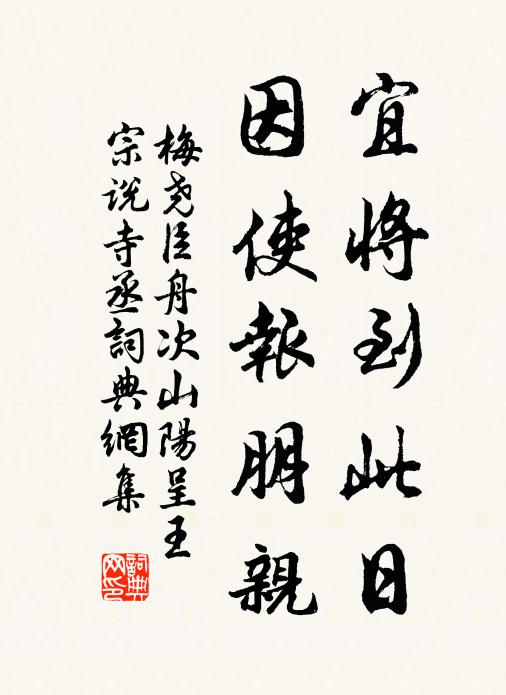 宜將到此日
因使報朋親
梅尧臣舟次山陽呈王
宗说寺丞詞典網集
詞典
网印